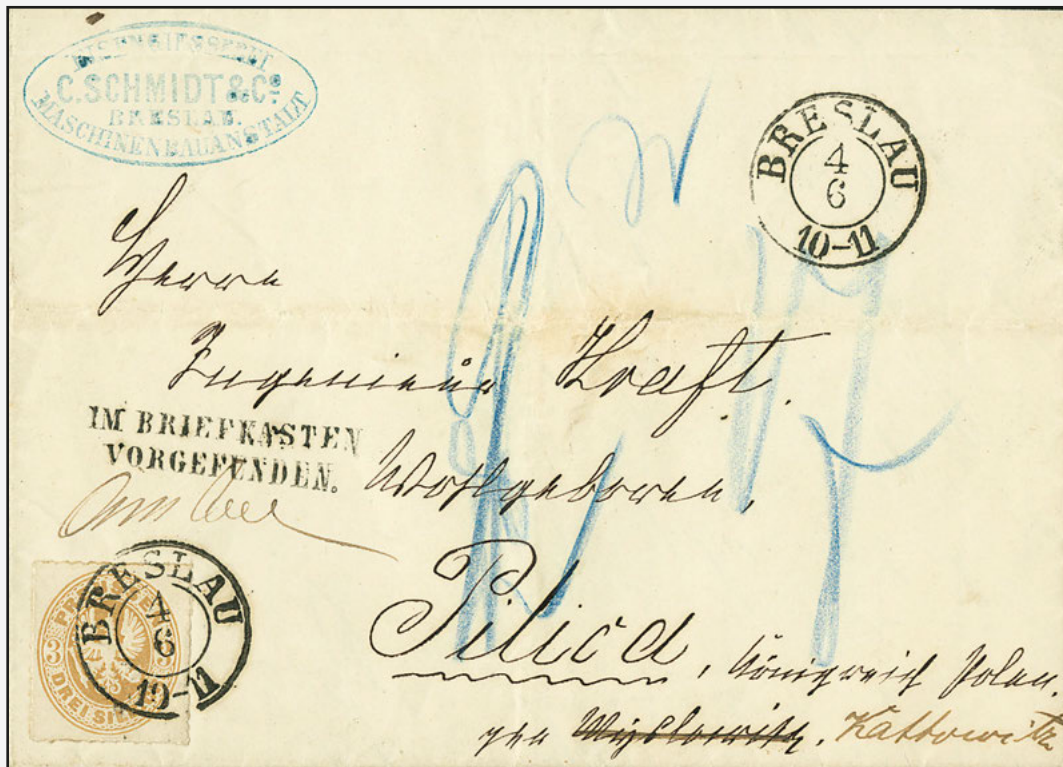 EISENGIESSEREI
C. SCHMIDT & Cº
BRESLAU.
MASCHINENBAUANSTALT
BRESLAU
4
6
10-11
Herrn
Ingenieur Kraft.
IM BRIEFKASTEN
VORGEFUNDEN.
Wohlgeboren,
Pilica, Königreich Polen.
per Myslowitz. Kattowitz
BRESLAU
4
6
10-11
3
DREI